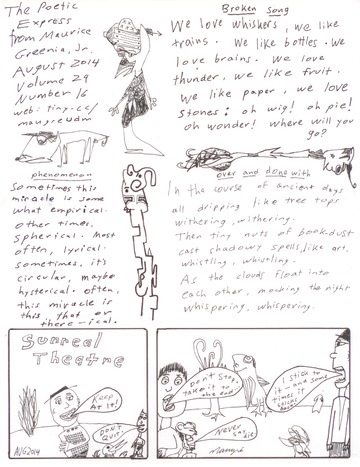 The Poetic
Express
from Maurice
Greenia, Jr.
August 2014
Volume 29
Number 16
web: tiny.cc/
maugreudm
Broken Song
We love whiskers, we like
trains. We like bottles. We
love brains. We love
thunder, we like fruit.
We like paper, we love
stones: oh wig! oh pie!
oh wonder! where will you
go?
phenomenon
Sometimes this
miracle is some
what empirical.
other times,
spherical. most
often, lyrical.
sometimes, it's
circular, maybe
hysterical. often,
this miracle is
this that or
there-ical.
over and done with
In the course of ancient days
all dripping like tree tops
withering, withering.
Then tiny nuts of bookdust
cast shadowy spells, like art.
whistling, whistling.
As the clouds float into
each other, mocking the night
whispering, whispering.
Surreal
Theatre
Keep
At it!
DON'T
QUIT
MG2014
Don't stop,
take it to
the end
Never
say die
I stick to
it - and some
times it